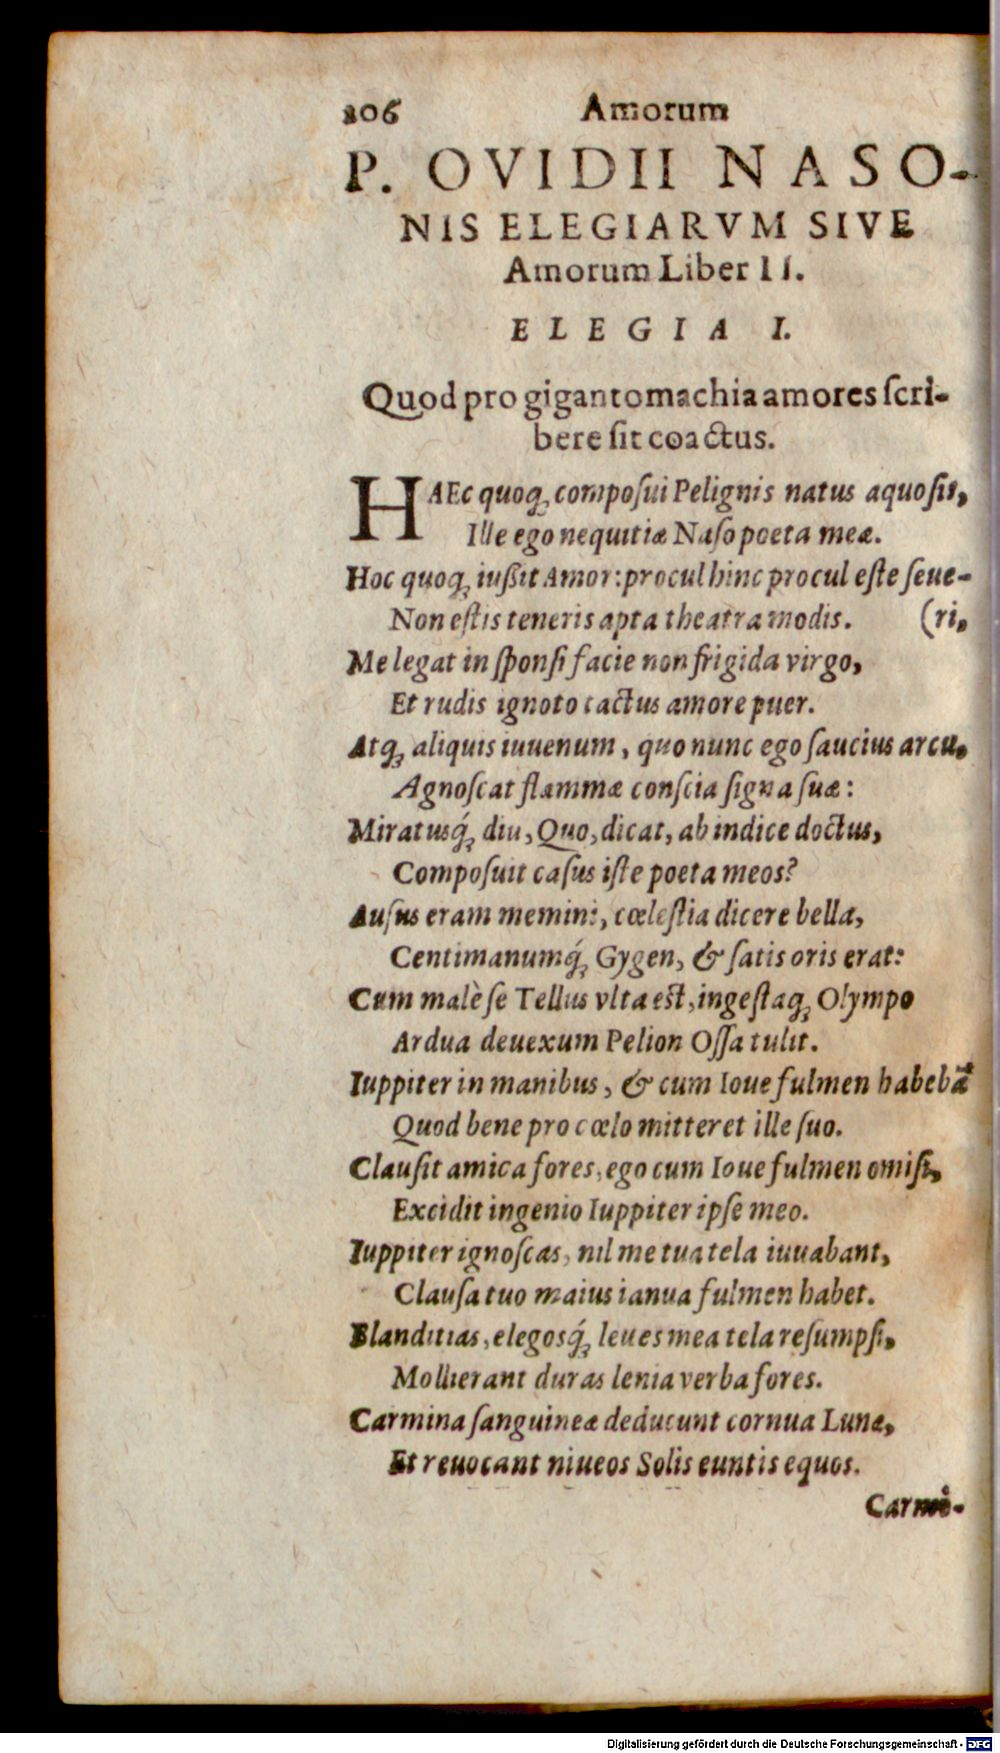 206 Amorum
P. OVIDII NASO-
NIS ELEGIARVM SIVE
Amorum Liber II.
ELEGIA I.
Quod pro gigantomachia amores ſcri-
bere ſit coactus.
HAEc quoq; compoſui Pelignis natus aquoſis,
Ille ego nequitiæ Naſo poeta meæ.
Hoc quoq; iußit Amor: procul hinc procul eſte ſeue-
Non eſtis teneris apta theatra modis. (ri,
Me legat in ſponſi facie non frigida virgo,
Et rudis ignoto tactus amore puer.
Atq; aliquis iuuenum, quo nunc ego ſaucius arcu,
Agnoſcat flammæ conſcia ſigna ſuæ:
Miratusq́; diu, Quo, dicat, ab indice doctus,
Compoſuit caſus iſte poeta meos?
Auſus eram memini, cœleſtia dicere bella,
Centimanumq́; Gygen, & ſatis oris erat:
Cum malè ſe Tellus vlta eſt, ingeſtaq; Olympo
Ardua deuexum Pelion Oſſa tulit.
Iuppiter in manibus, & cum Ioue fulmen habebã
Quod bene pro cœlo mitteret ille ſuo.
Clauſit amica fores, ego cum Ioue fulmen omiſi,
Excidit ingenio Iuppiter ipſe meo.
Iuppiter ignoſcas, nil me tua tela iuuabant,
Clauſa tuo maius ianua fulmen habet.
Blanditias, elegosq́; leues mea tela reſumpſi,
Mollierant duras lenia verba fores.
Carmina ſanguineæ deducunt cornua Lunæ,
Et reuocant niueos Solis euntis equos.
Carmi-
Digitalisierung gefördert durch die Deutsche Forschungsgemeinschaft - DFG